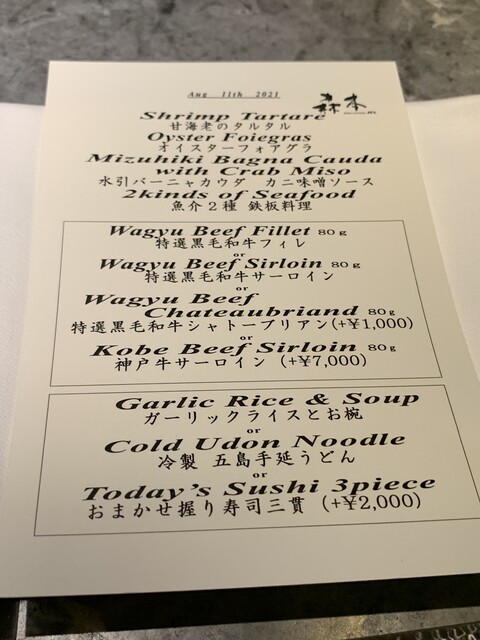 Aug 11th 2021
森本
Shrimp Tartare
甘海老のタルタル
Oyster Foiegras
オイスターフォアグラ
Mizuhiki Bagna Cauda
with Crab Miso
水引バーニャカウダ カニ味噌ソース
2kinds of Seafood
魚介２種 鉄板料理
Wagyu Beef Fillet 80g
特選黒毛和牛フィレ
or
Wagyu Beef Sirloin 80g
特選黒毛和牛サーロイン
or
Wagyu Beef
Chateaubriand 80g
特選黒毛和牛シャトーブリアン(+¥1,000)
or
Kobe Beef Sirloin 80g
神戸牛サーロイン (+¥7,000)
Garlic Rice & Soup
ガーリックライスとお椀
or
Cold Udon Noodle
冷製 五島手延うどん
or
Today's Sushi 3piece
おまかせ握り寿司三貫 (+¥2,000)